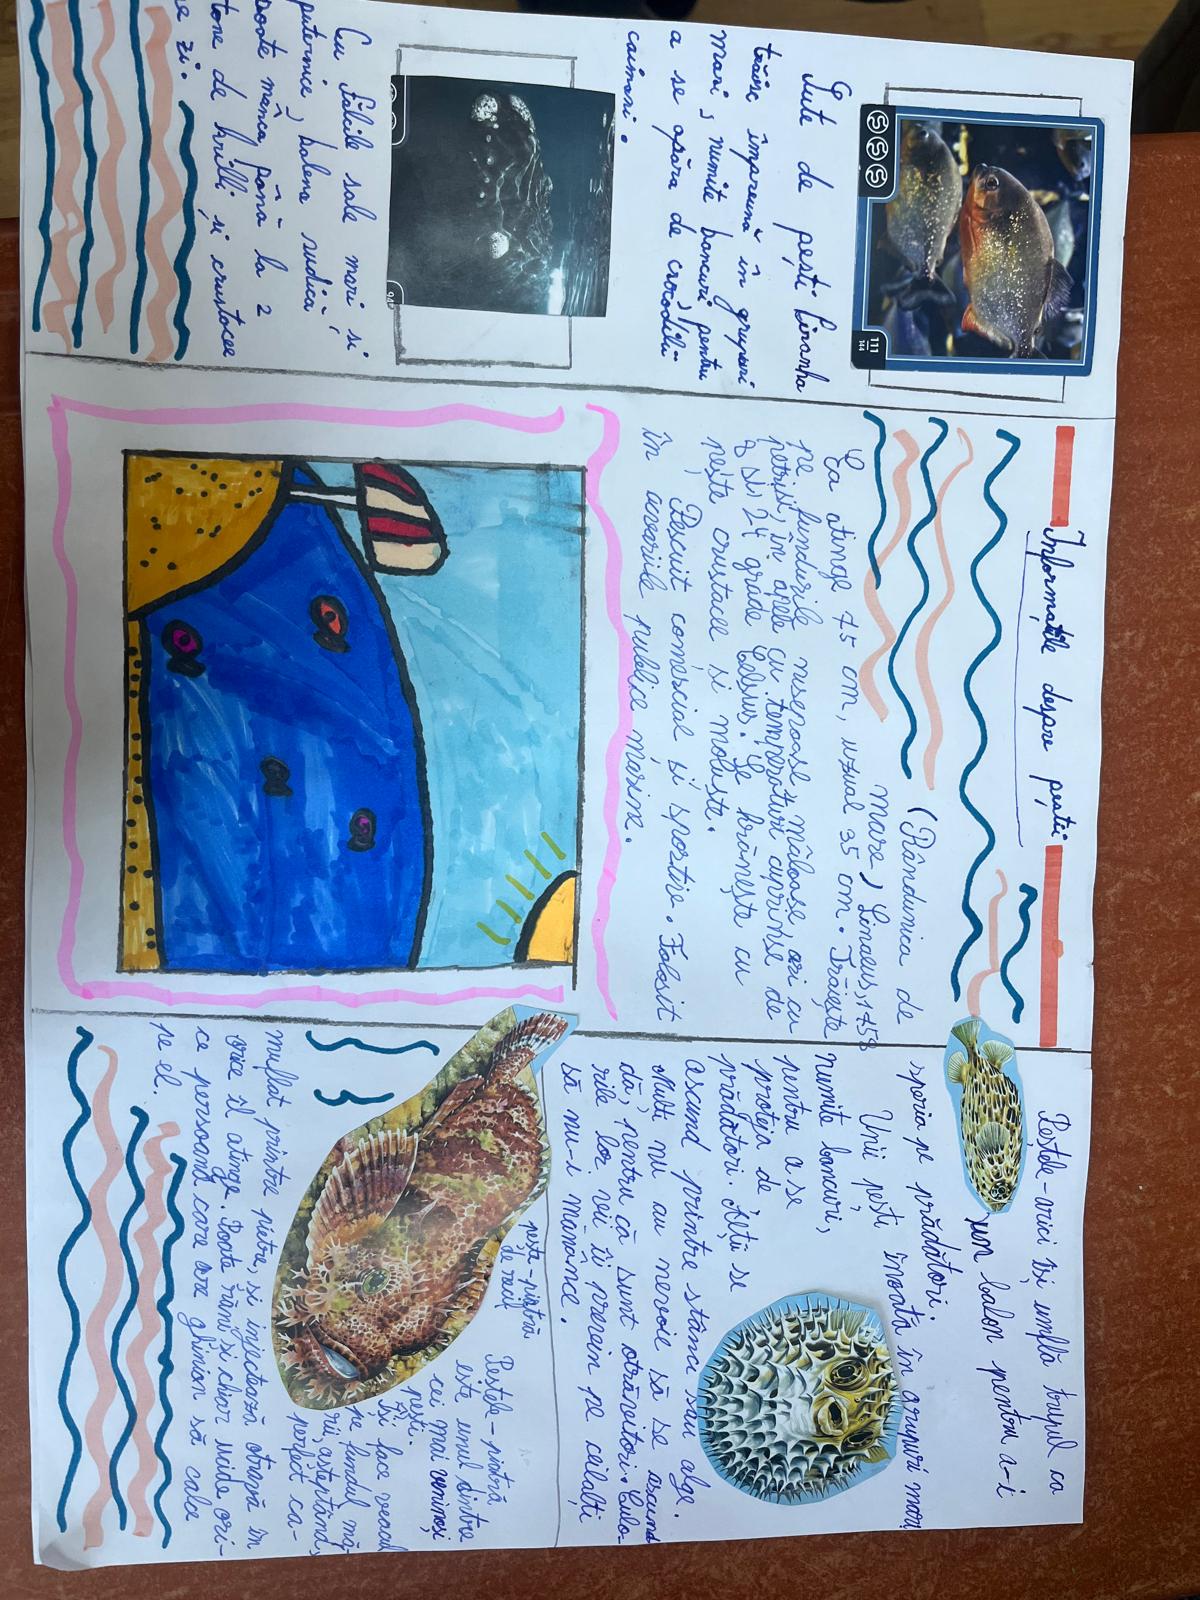 Informațiile despre pești
Sute de pești Piranha
trăiesc împreună în grupuri
mari, numite bancuri pentru
a se apăra de crocodili
caimani.
111
144
Cu fălcile sale mari și
puternice, balena
poate mânca până la 2
tone de krilli și crustacee
pe zi.
(Rândunica de
mare, Linaeus, 1758
Ea atinge 75 cm, uzual 35 cm. Trăiește
pe fundurile niseroase, mâloase, ori cu
petriși, în apele cu temperaturi cuprinse de
8 și 24 grade Celsius. Se hrănește cu
pește crustacee și moluște.
Pescuit comercial și sportive. Folosit
în acvariile publice marine.
Peștele-arici își umflă trupul ca
un balon pentru a-i
speria pe prădători.
Unii pești înoată în grupuri mari
numite bancuri,
pentru a se
proteja de
prădători. Alții se
ascund printre stânci sau alge.
Multe nu au nevoie să se ascund
dă, pentru că sunt otrăvitori. Culo-
rile lor vii îi previn pe ceilalți
să nu-i mănânce.
pește-piatră
de recif
Peștele-piatră
este unul dintre
cei mai veninoși
pești.
Își face veacul
pe fundul mă-
rii, așteptând,
perfect ca-
muflat printre pietre, și injectează otravă în
orice îl atinge. Poate răni și chiar ucide ori-
ce persoană care are ghinion să calce
pe el.